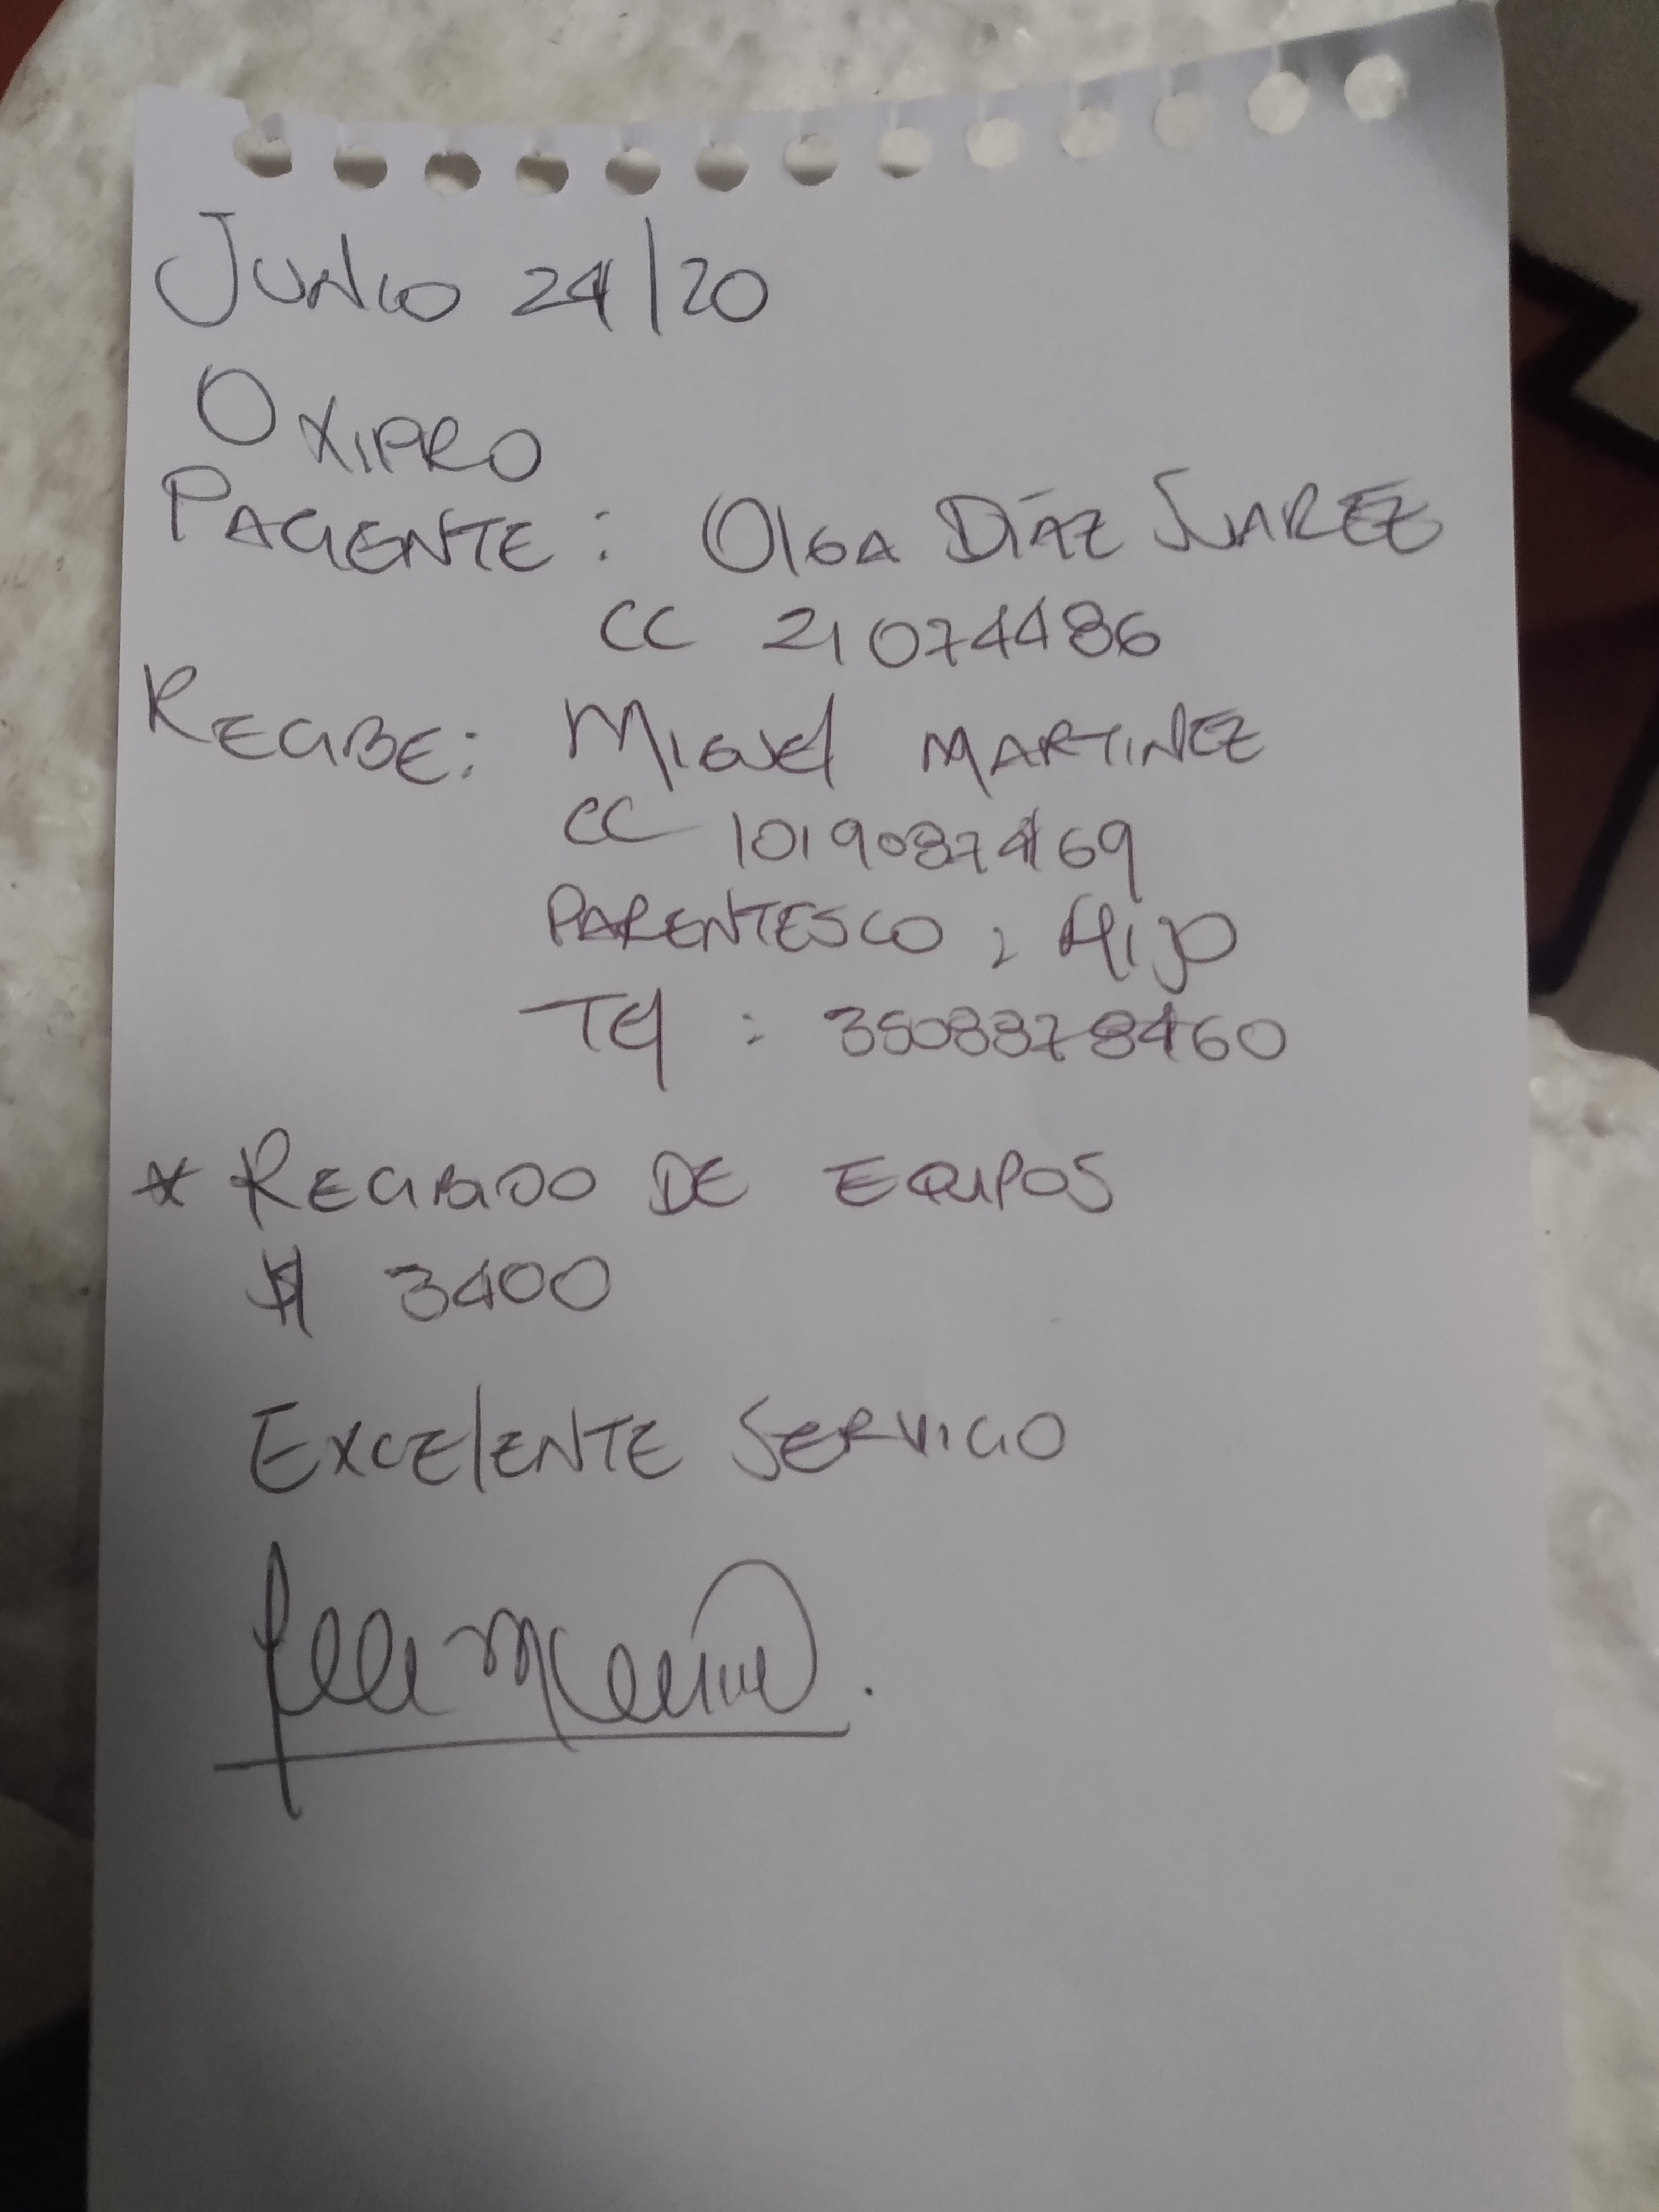 JUNIO 24/20
OXIPRO
PACIENTE : OlGA DÍAZ JUAREZ
CC 21074486
RECIBE: MIGUel MARTINEZ
CC 1019087469
PARENTESCO : HIJO
TEl : 3508878460
* RECIBIDO DE EQUIPOS
$ 3400
EXCElENTE SERVICIO